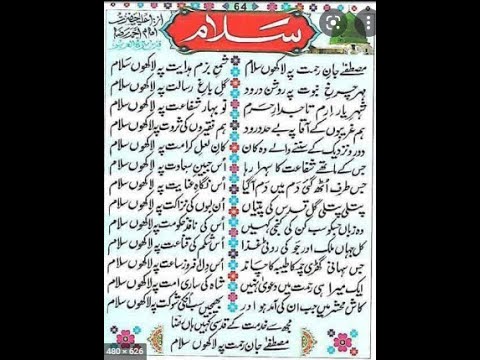 64
از: اعلیٰحضرت
امام احمد رضا
سلام
مصطفےٰ جانِ رحمت پہ لاکھوں سلام شمعِ بزمِ ہدایت پہ لاکھوں سلام
مہرِ چرخِ نبوت پہ روشن درود گلِ باغِ رسالت پہ لاکھوں سلام
شہریارِ ارم تاجدارِ حرم نو بہارِ شفاعت پہ لاکھوں سلام
ہم غریبوں کے آقا پہ بے حد درود ہم فقیروں کی ثروت پہ لاکھوں سلام
دور و نزدیک کے سننے والے وہ کان کانِ لعلِ کرامت پہ لاکھوں سلام
جس کے ماتھے شفاعت کا سہرا رہا اُس جبینِ سعادت پہ لاکھوں سلام
جس طرف اُٹھ گئی دم میں دم آگیا اُس نگاہِ عنایت پہ لاکھوں سلام
پتلی پتلی گلِ قدس کی پتیاں اُن لبوں کی نزاکت پہ لاکھوں سلام
وہ زباں جس کو سب کن کی کنجی کہیں اُس کی نافذ حکومت پہ لاکھوں سلام
کل جہاں ملک اور جَو کی روٹی غذا اُس شکم کی قناعت پہ لاکھوں سلام
جس سہانی گھڑی چمکا طیبہ کا چاند اُس دل افروز ساعت پہ لاکھوں سلام
ایک میرا ہی رحمت میں دعویٰ نہیں شاہ کی ساری امت پہ لاکھوں سلام
کاش محشر میں جب ان کی آمد ہو اور بھیجیں سب انکی شوکت پہ لاکھوں سلام
مجھ سے خدمت کے قدسی کہیں ہاں رضا
مصطفےٰ جانِ رحمت پہ لاکھوں سلام
480 × 626